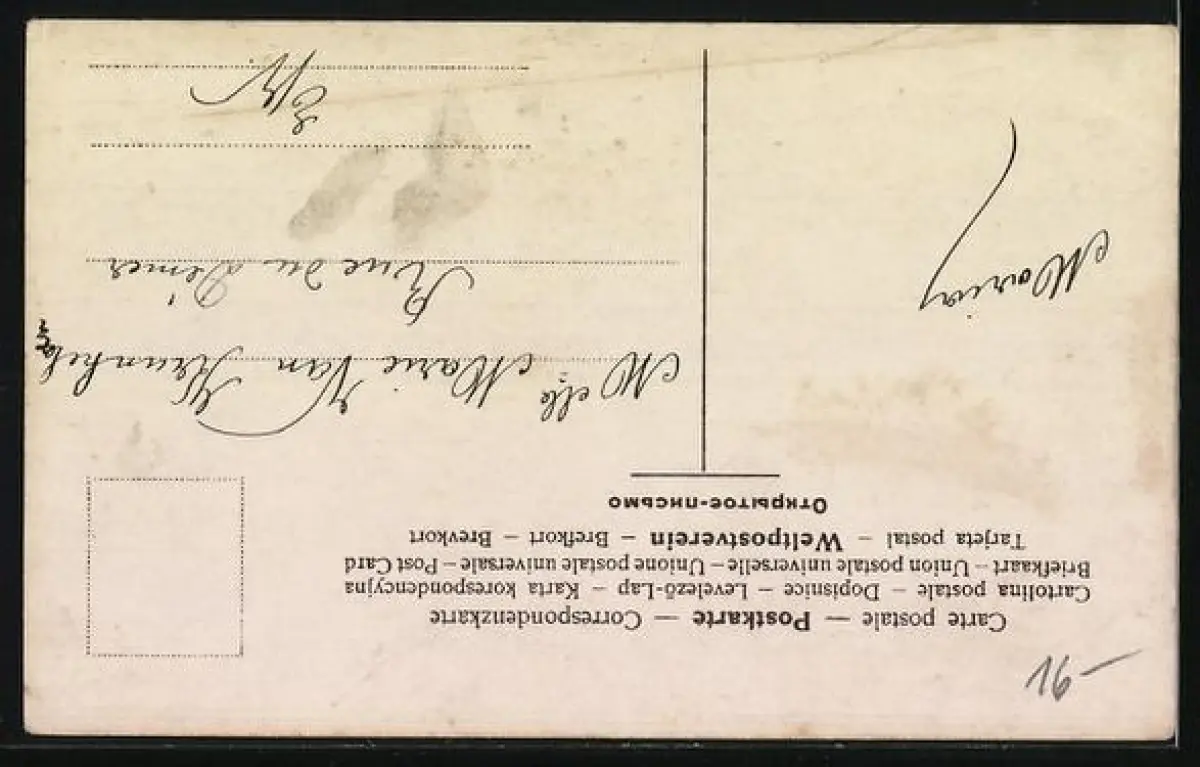 Carte postale — Postkarte — Correspondenzkarte
Cartolina postale — Dopisnice — Levelező-Lap — Karta korespondencyjna
Briefkaart — Union postale universelle — Unione postale universale — Post Card
Tarjeta postal — Weltpostverein — Brefkort — Brevkort
Открытое-письмо
Maria
Melle Marie Van
Rue du Démer
E/V.
16-